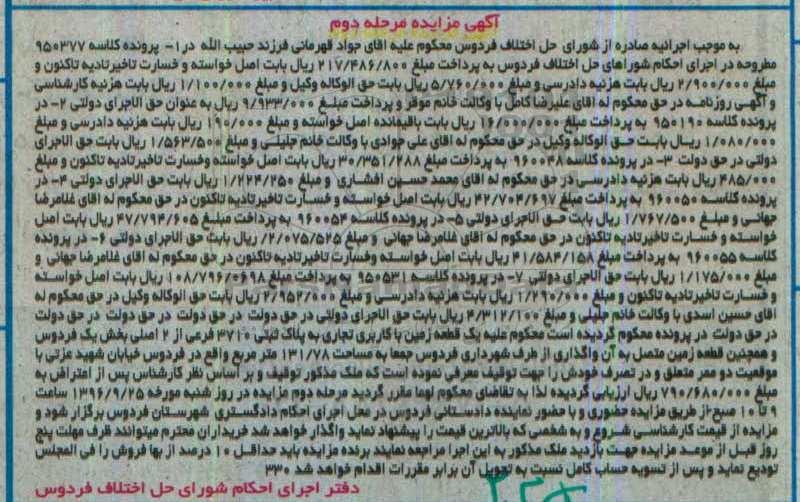 آگهی مزایده مرحله دوم
به موجب اجرائیه صادره از شورای حل اختلاف فردوس محکوم علیه اقای جواد قهرمانی فرزند حبیب الله در ۱- پرونده کلاسه ۹۵۰۳۷۷
مطروحه در اجرای احکام شوراهای حل اختلاف فردوس به پرداخت مبلغ ۲۱۷/۴۸۶/۸۰۰ ریال بابت اصل خواسته و خسارت تاخیرتادیه تاکنون و
مبلغ ۲/۹۰۰/۰۰۰ ریال بابت هزینه دادرسی و مبلغ ۵/۷۶۰/۰۰۰ ریال بابت حق الوکاله وکیل و مبلغ ۱/۱۰۰/۰۰۰ ریال بابت هزینه کارشناسی
و آگهی روزنامه در حق محکوم له اقای علیرضا کامل با وکالت خانم موقر و پرداخت مبلغ ۹/۹۳۳/۰۰۰ ریال به عنوان حق الاجرای دولتی ۲- در
پرونده کلاسه ۹۵۰۱۹۰ به پرداخت مبلغ ۱۶/۲۰۰/۰۰۰ ریال بابت باقیمانده اصل خواسته و مبلغ ۱۹۰/۰۰۰ ریال بابت هزینه دادرسی و مبلغ
۱/۰۸۰/۰۰۰ ریال بابت حق الوکاله وکیل در حق محکوم له اقای علی جوادی با وکالت خانم جلیلی و مبلغ ۱/۵۶۳/۵۰۰ ریال بابت حق الاجرای
دولتی در حق دولت ۳- در پرونده کلاسه ۹۶۰۰۴۸ به پرداخت مبلغ ۳۰/۳۵۱/۲۸۸ ریال بابت اصل خواسته وخسارت تاخیرتادیه تاکنون و مبلغ
۴۸۵/۰۰۰ ریال بابت هزنیه دادرسی در حق محکوم له اقای محمد حسین افشاری و مبلغ ۱/۲۲۴/۲۵۰ ریال بابت حق الاجرای دولتی ۴- در
پرونده کلاسه ۹۶۰۰۵۰ به پرداخت مبلغ ۴۲/۷۰۴/۶۹۷ ریال بابت اصل خواسته و خسارت تاخیرتادیه تاکنون در حق محکوم له اقای غلامرضا
جهانی و مبلغ ۱/۷۶۷/۵۰۰ ریال بابت حق الاجرای دولتی ۵- در پرونده کلاسه ۹۶۰۰۵۴ به پرداخت مبلغ ۴۷/۷۹۴/۶۰۵ ریال بابت اصل
خواسته و خسارت تاخیرتادیه تاکنون در حق محکوم له آقای غلامرضا جهانی و مبلغ ۲/۰۷۵/۵۲۵ ریال بابت حق الاجرای دولتی ۶- در پرونده
کلاسه ۹۶۰۰۵۵ به پرداخت مبلغ ۴۱/۵۸۴/۱۵۸ ریال بابت اصل خواسته وخسارت تاخیرتادیه تاکنون در حق محکوم له اقای غلامرضا جهانی و
مبلغ ۱/۱۷۵/۰۰۰ ریال بابت حق الاجرای دولتی ۷- در پرونده کلاسه ۹۵۰۵۳۱ به پرداخت مبلغ ۱۰۸/۷۹۶/۰۶۹۸ ریال بابت اصل خواسته
و خسارت تاخیرتادیه تاکنون و مبلغ ۱/۲۹۰/۰۰۰ ریال بابت هزینه دادرسی و مبلغ ۲/۹۵۲/۰۰۰ ریال بابت حق الوکاله وکیل در حق محکوم له
اقای حسین اسدی با وکالت خانم جلیلی و مبلغ ۴/۳۱۲/۱۰۰ ریال بابت حق الاجرای دولتی در حق دولت در حق دولت در حق دولت در حق دولت
در حق دولت در پرونده محکوم گردیده است محکوم علیه یک قطعه زمین با کاربری تجاری به پلاک ثبتی ۳۷۱۰ فرعی از ۲ اصلی بخش یک فردوس
و همچنین قطعه زمین متصل به آن واگذاری از طرف شهرداری فردوس جمعا به مساحت ۱۳۱/۷۸ متر مربع واقع در فردوس خیابان شهید عزتی با
موقعیت دو ممر متعلق و در تصرف خودش را جهت توقیف معرفی نموده است که ملک مذکور توقیف و بر اساس نظر کارشناس پس از اعتراض به
مبلغ ۷۹۰/۶۸۰/۰۰۰ ریال ارزیابی گردیده لذا به تقاضای محکوم لهما مقرر گردید مرحله دوم مزایده در روز شنبه مورخه ۱۳۹۶/۹/۲۵ ساعت
۹ تا ۱۰ صبح از طریق مزایده حضوری و با حضور نماینده دادستانی فردوس در محل اجرای احکام دادگستری شهرستان فردوس برگزار شود و
مزایده از قیمت کارشناسی شروع و به شخصی که بالاترین قیمت را پیشنهاد نماید واگذار خواهد شد خریداران محترم میتوانند ظرف مهلت پنج
روز قبل از موعد مزایده جهت بازدید ملک مذکور به این اجرا مراجعه نمایند برنده مزایده باید حداقل ۱۰ درصد از بها فروش را فی المجلس
تودیع نماید و پس از تسویه حساب کامل نسبت به تحویل آن برابر مقررات اقدام خواهد شد ۳۳۰
دفتر اجرای احکام شورای حل اختلاف فردوس